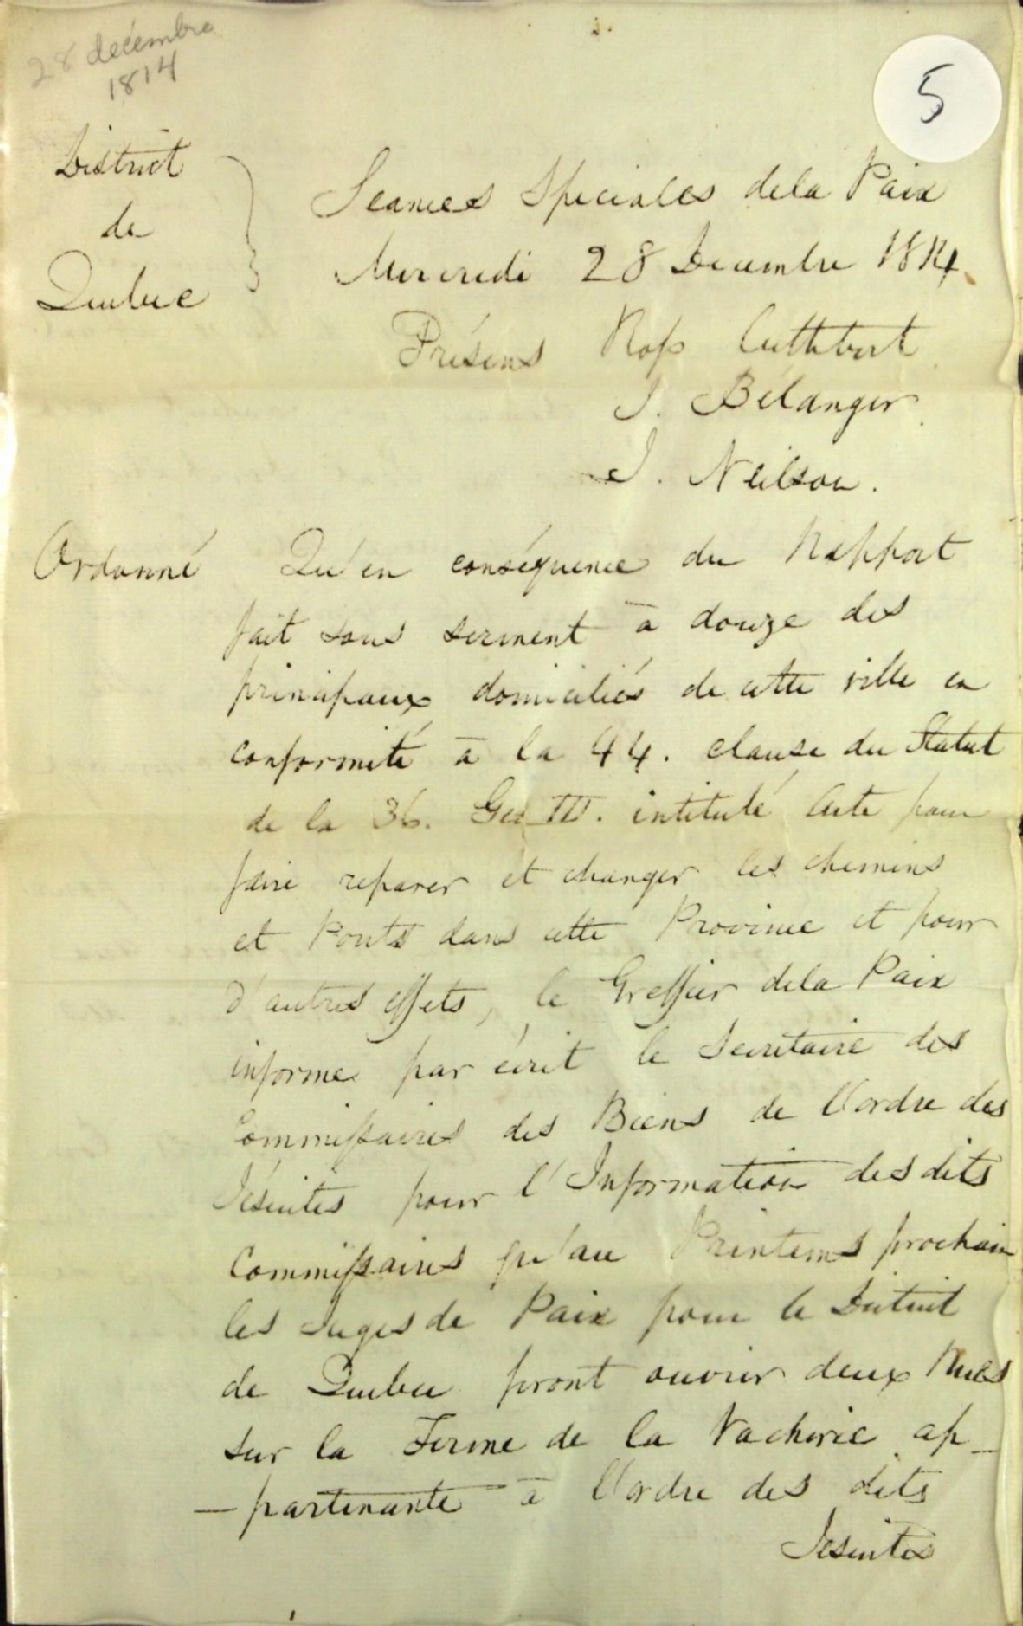 28 décembre
1814
5
District
de
Quebec
Seances Speciales dela Paix
Mercredi 28 Decembre 1814
Présens Ross Cuthbert
J. Bélanger
J. Neilson.
Ordonné Qu'en conséquence du Rapport
fait sous serment à douze des
principaux domiciliés de cette ville en
conformité à la 44. clause du Statut
de la 36. Geo III. intitulé Acte pour
faire reparer et changer les chemins
et Ponts dans cette Province et pour
d'autres effets, le Greffier dela Paix
informe par écrit le Secretaire des
Commissaires des Biens de l'ordre des
Jésuites pour l'Information des dits
Commissaires qu'au Printems prochain
les Juges de Paix pour le District
de Quebec feront ouvrir deux Rues
sur la Ferme de la Vacherie ap-
-partenante à l'ordre des dits
Jesuites